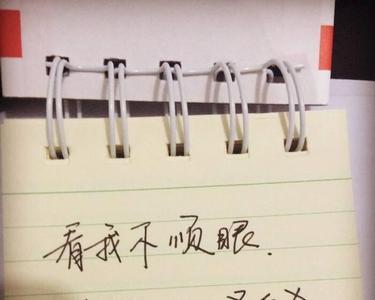 看我不顺眼.